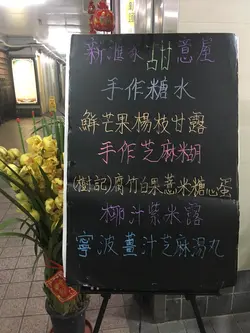 新進水甜薏屋
手作糖水
鮮芒果楊枝甘露
手作芝麻糊
(樹記)腐竹白果薏米糖心蛋
椰汁紫米露
寧波薑汁芝麻湯丸